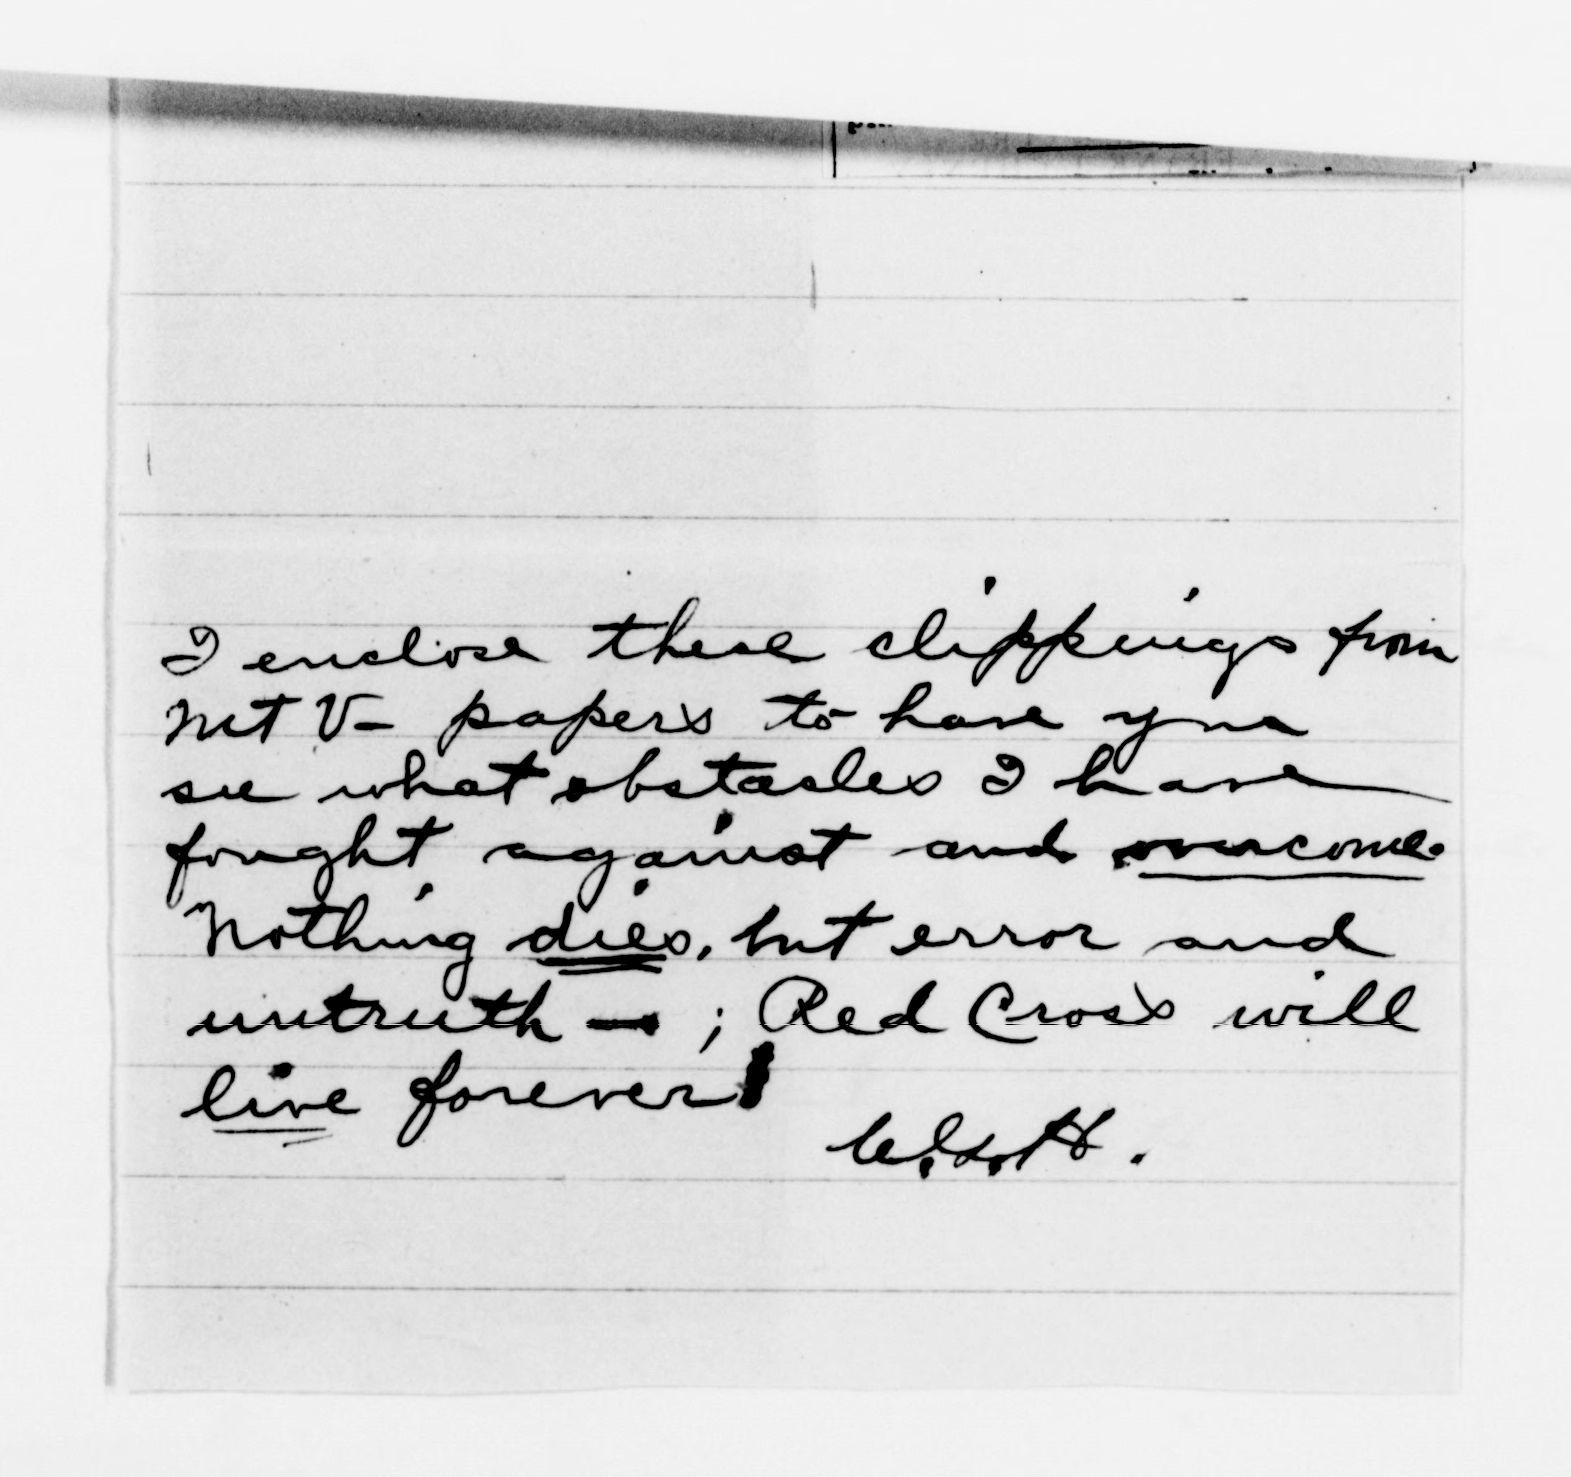 I enclose these clippings from
Mt V- papers to have you
see what obstacles I have
fought against and overcome.
Nothing dies, but error and
untruth - ; Red Cross will
live forever!